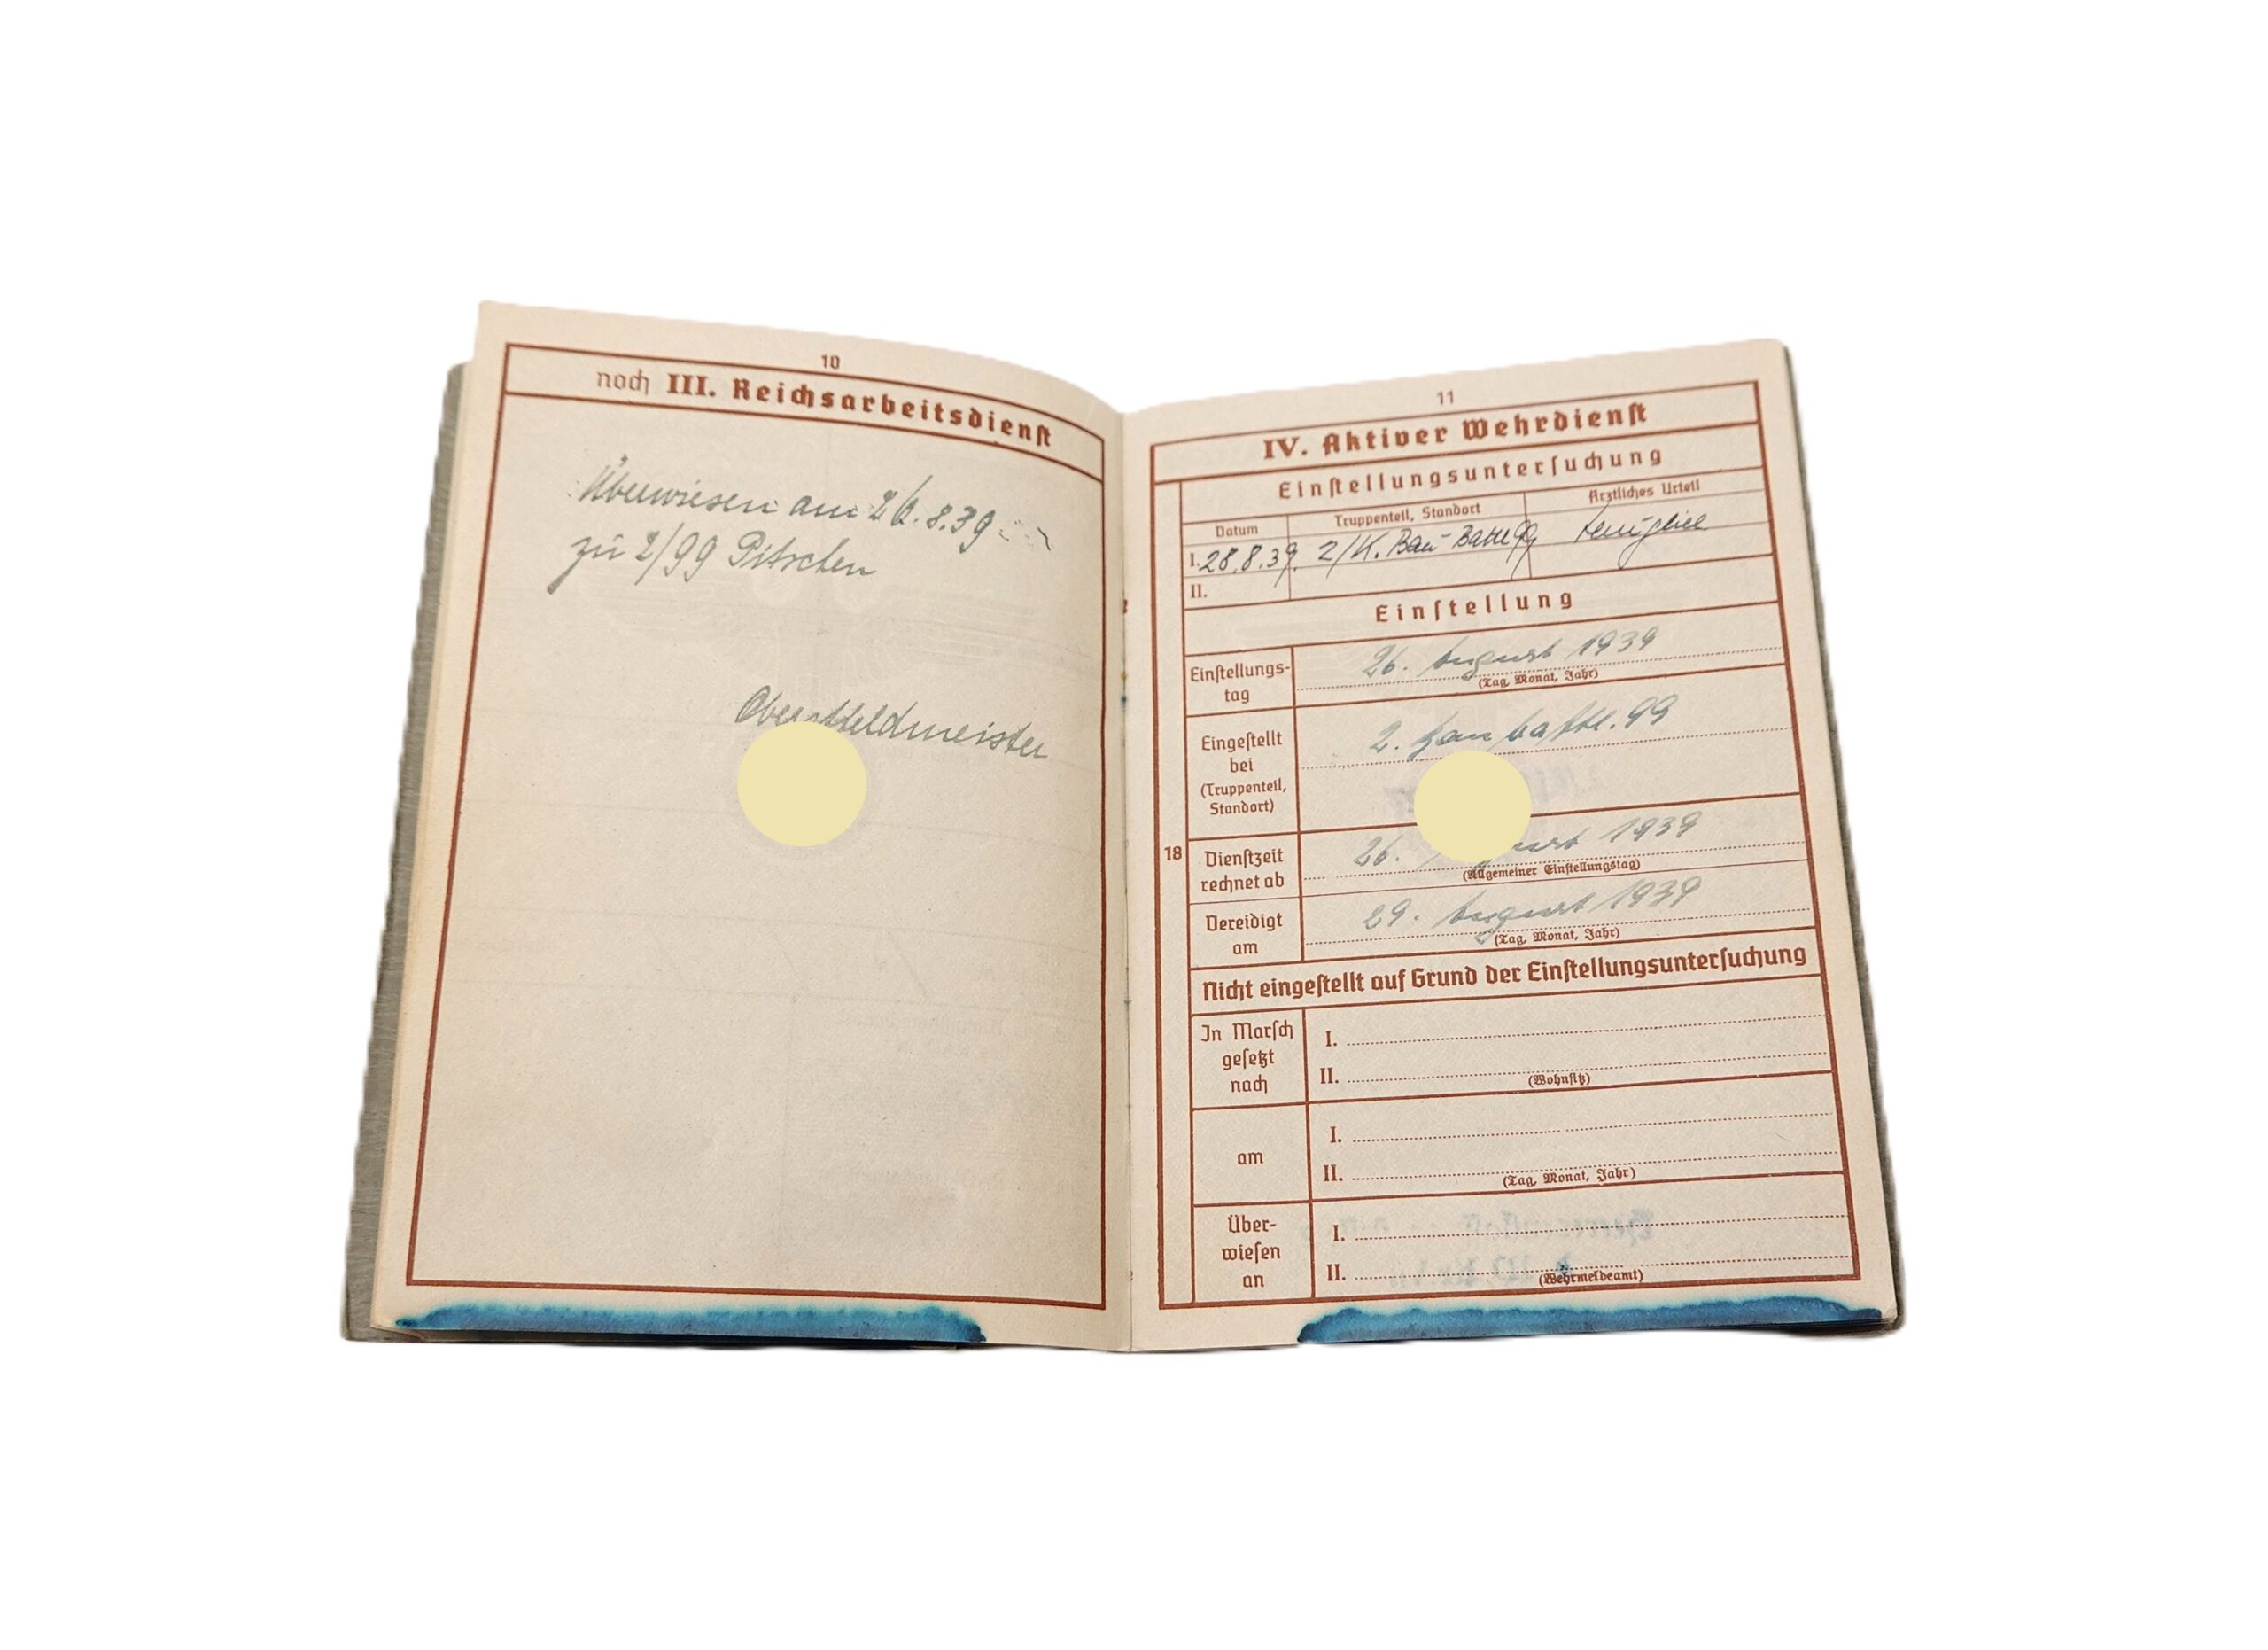 10
noch III. Reichsarbeitsdienst
Überwiesen am 26.8.39
zu 2/99 Pitschen
Oberstfeldmeister
11
IV. Aktiver Wehrdienst
Einstellungsuntersuchung
Datum Truppenteil, Standort Ärztliches Urteil
I. 28.8.39. 2/K. Bau-Battl 99 tauglich
II.
Einstellung
Einstellungs-
tag
26. August 1939
(Tag, Monat, Jahr)
Eingestellt
bei
(Truppenteil,
Standort)
2. battl. 99
18
Dienstzeit
rechnet ab
26. August 1939
(Allgemeiner Einstellungstag)
Vereidigt
am
29. August 1939
(Tag, Monat, Jahr)
Nicht eingestellt auf Grund der Einstellungsuntersuchung
In Marsch
gesetzt
nach
I.
II.
(Wohnsitz)
am
I.
II.
(Tag, Monat, Jahr)
Über-
wiesen
an
I.
II.
(Wehrmeldeamt)